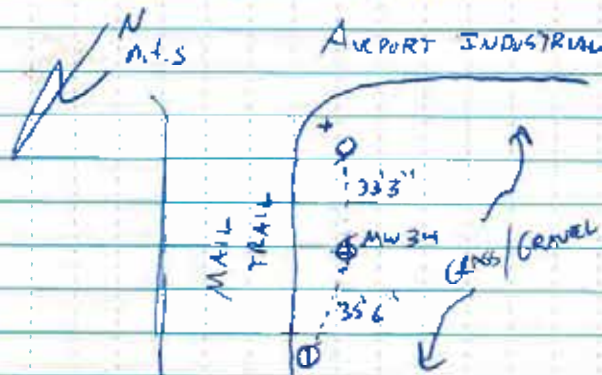 N
n.t.s
AIRPORT INDUSTRIAL
33'3"
MW34
MAIL
TRAIL
GRASS/GRAVEL
35'6"